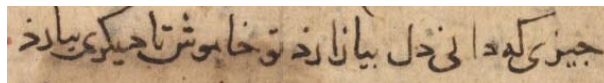 جیزی که دانی دل بیازارذ تو خاموش تا دیکری بیارذ